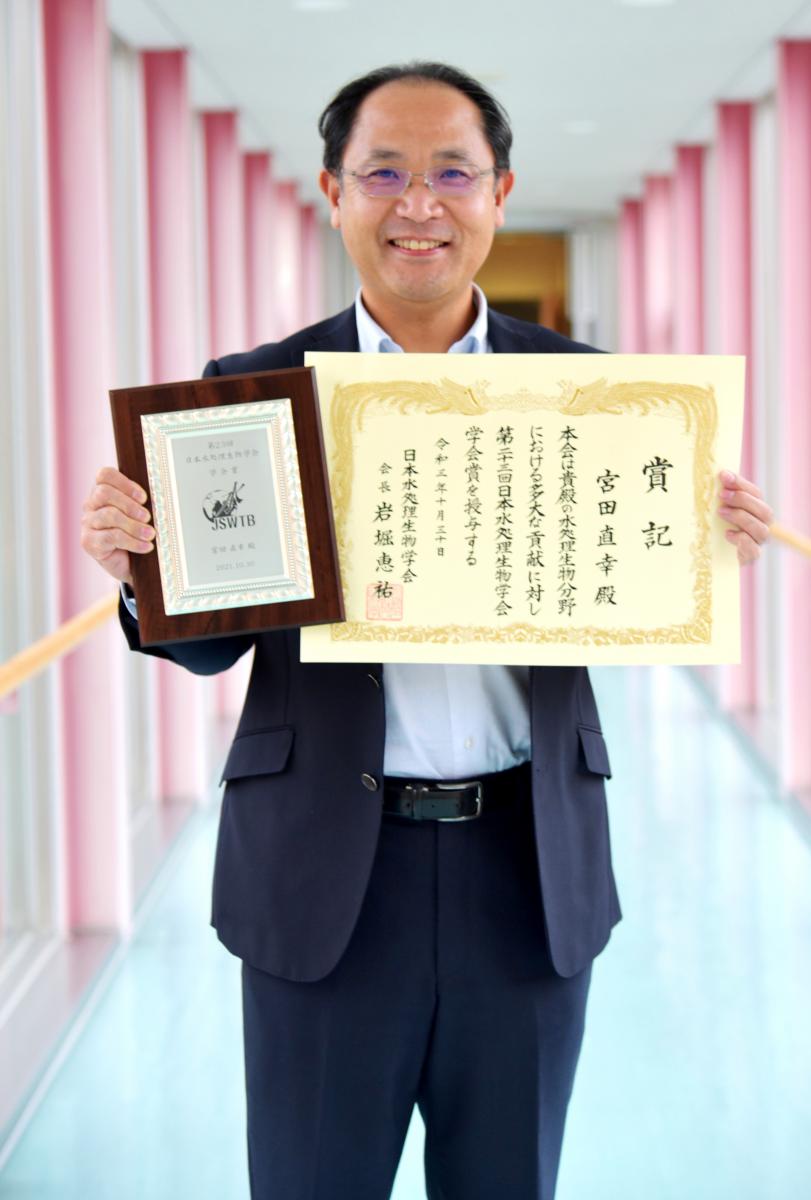 第23回
日本水処理生物学会
学会賞
JSWTB
宮田 直幸 殿
2021.10.30
賞記
宮田直幸殿
本会は貴殿の水処理生物分野
における多大な貢献に対し
第二十三回日本水処理生物学会
学会賞を授与する
令和三年十月三十日
日本水処理生物学会
会長 岩堀恵祐